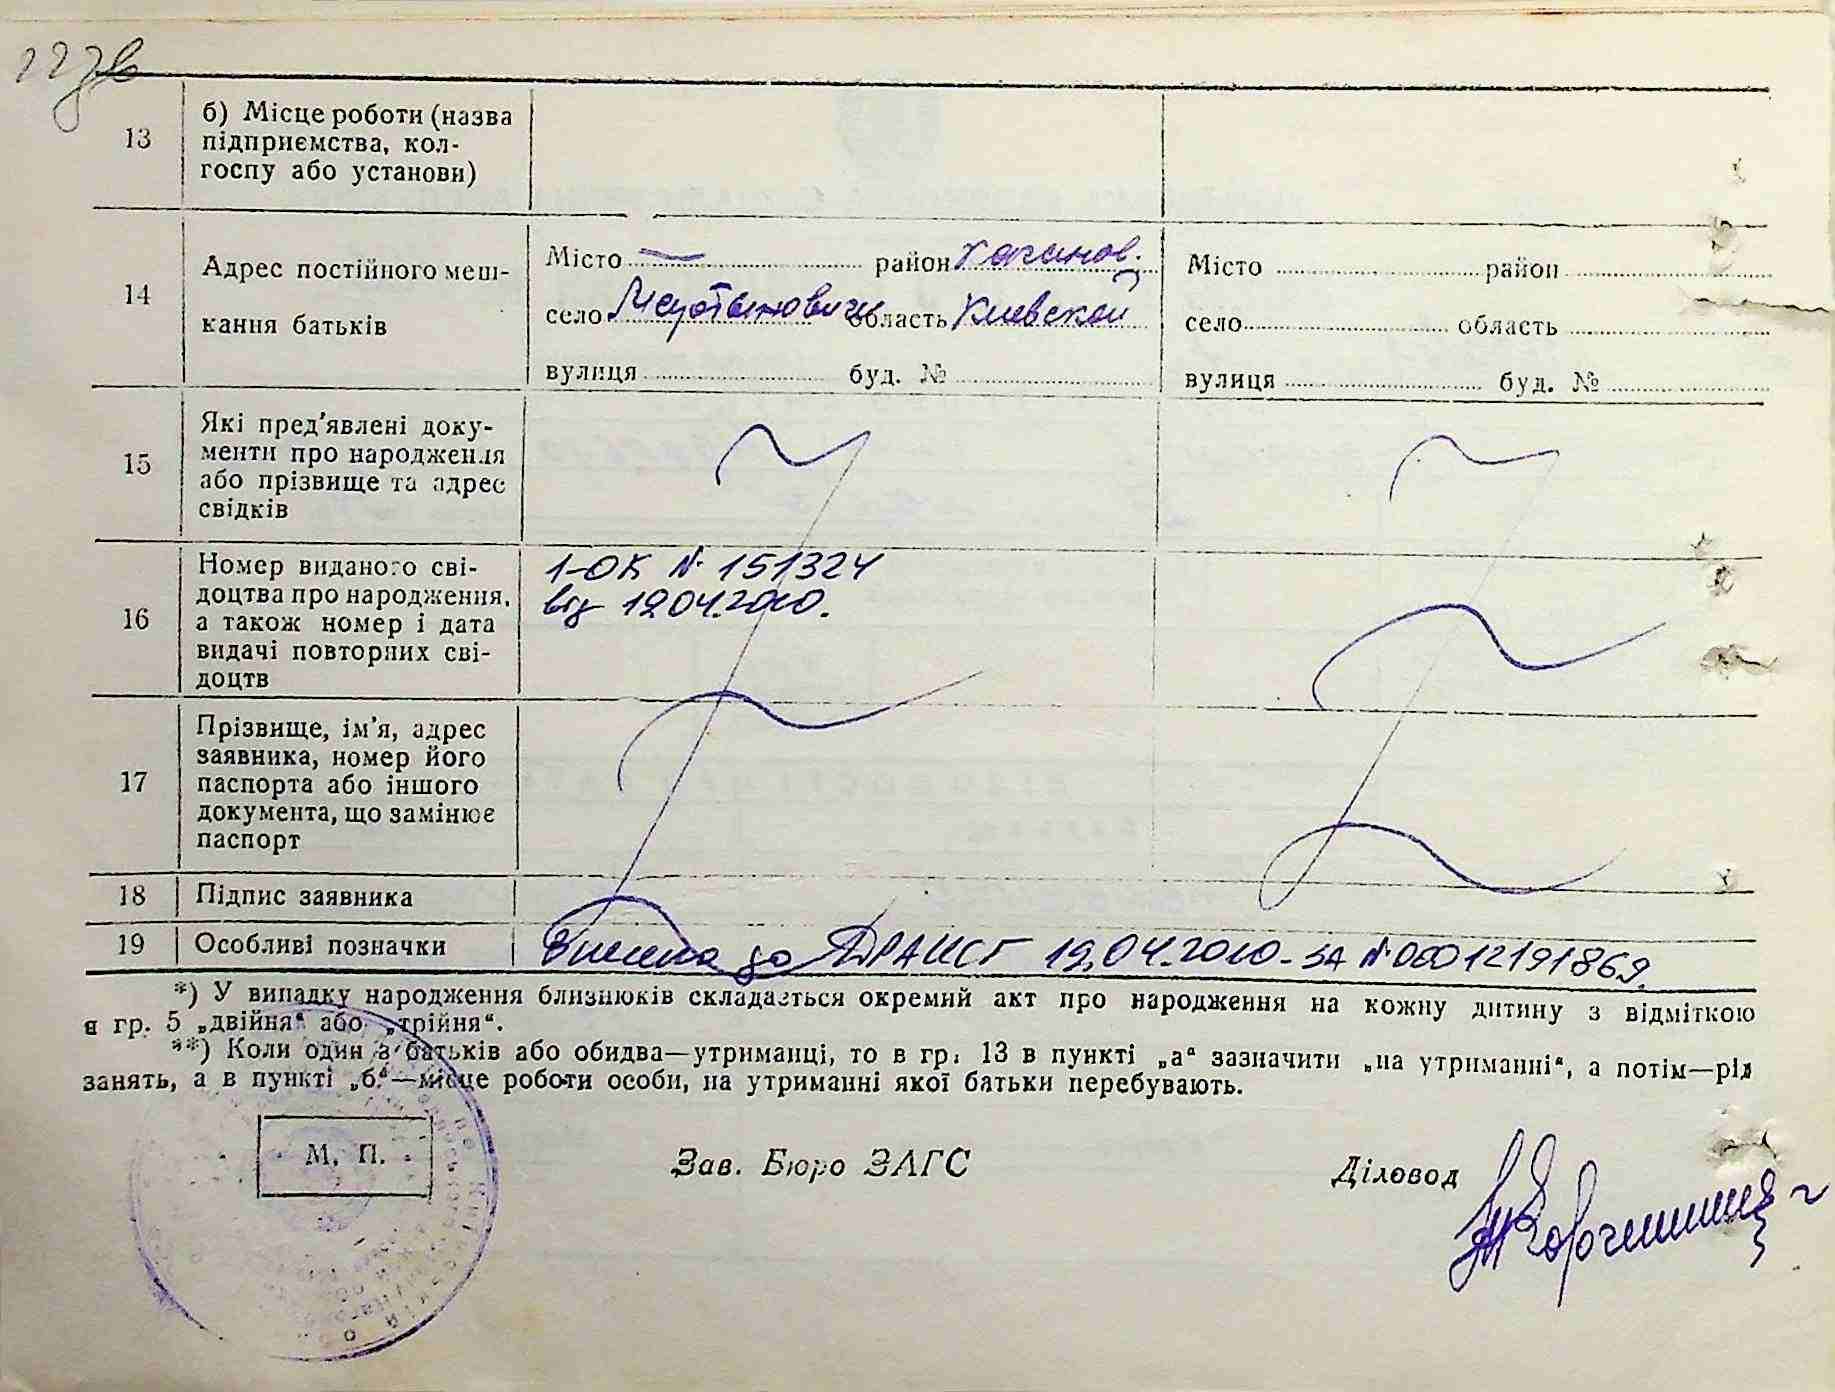 13
б) Місце роботи (назва
підприємства, кол-
госпу або установи)
14
Адрес постійного меш-
кання батьків
Місто — район Каганов.
село область Киевской
вулиця буд. №
Місто район
село область
вулиця буд. №
15
Які пред'явлені доку-
менти про народження
або прізвище та адрес
свідків
16
Номер виданого сві-
доцтва про народження,
а також номер і дата
видачі повторних сві-
доцтв
1-ОК № 151324
від 19.04.2010.
17
Прізвище, ім'я, адрес
заявника, номер його
паспорта або іншого
документа, що замінює
паспорт
18
Підпис заявника
19
Особливі позначки
Внесено до ДРАЦСГ 19.04.2010 - за № 00012191869.
*) У випадку народження близнюків складається окремий акт про народження на кожну дитину з відміткою
в гр. 5 „двійня“ або „трійня“.
**) Коли один з батьків або обидва—утриманці, то в гр. 13 в пункті „а“ зазначити „на утриманні“, а потім—рід
занять, а в пункті „б“—місце роботи особи, на утриманні якої батьки перебувають.
М. П.
Зав. Бюро ЗАГС
Діловод